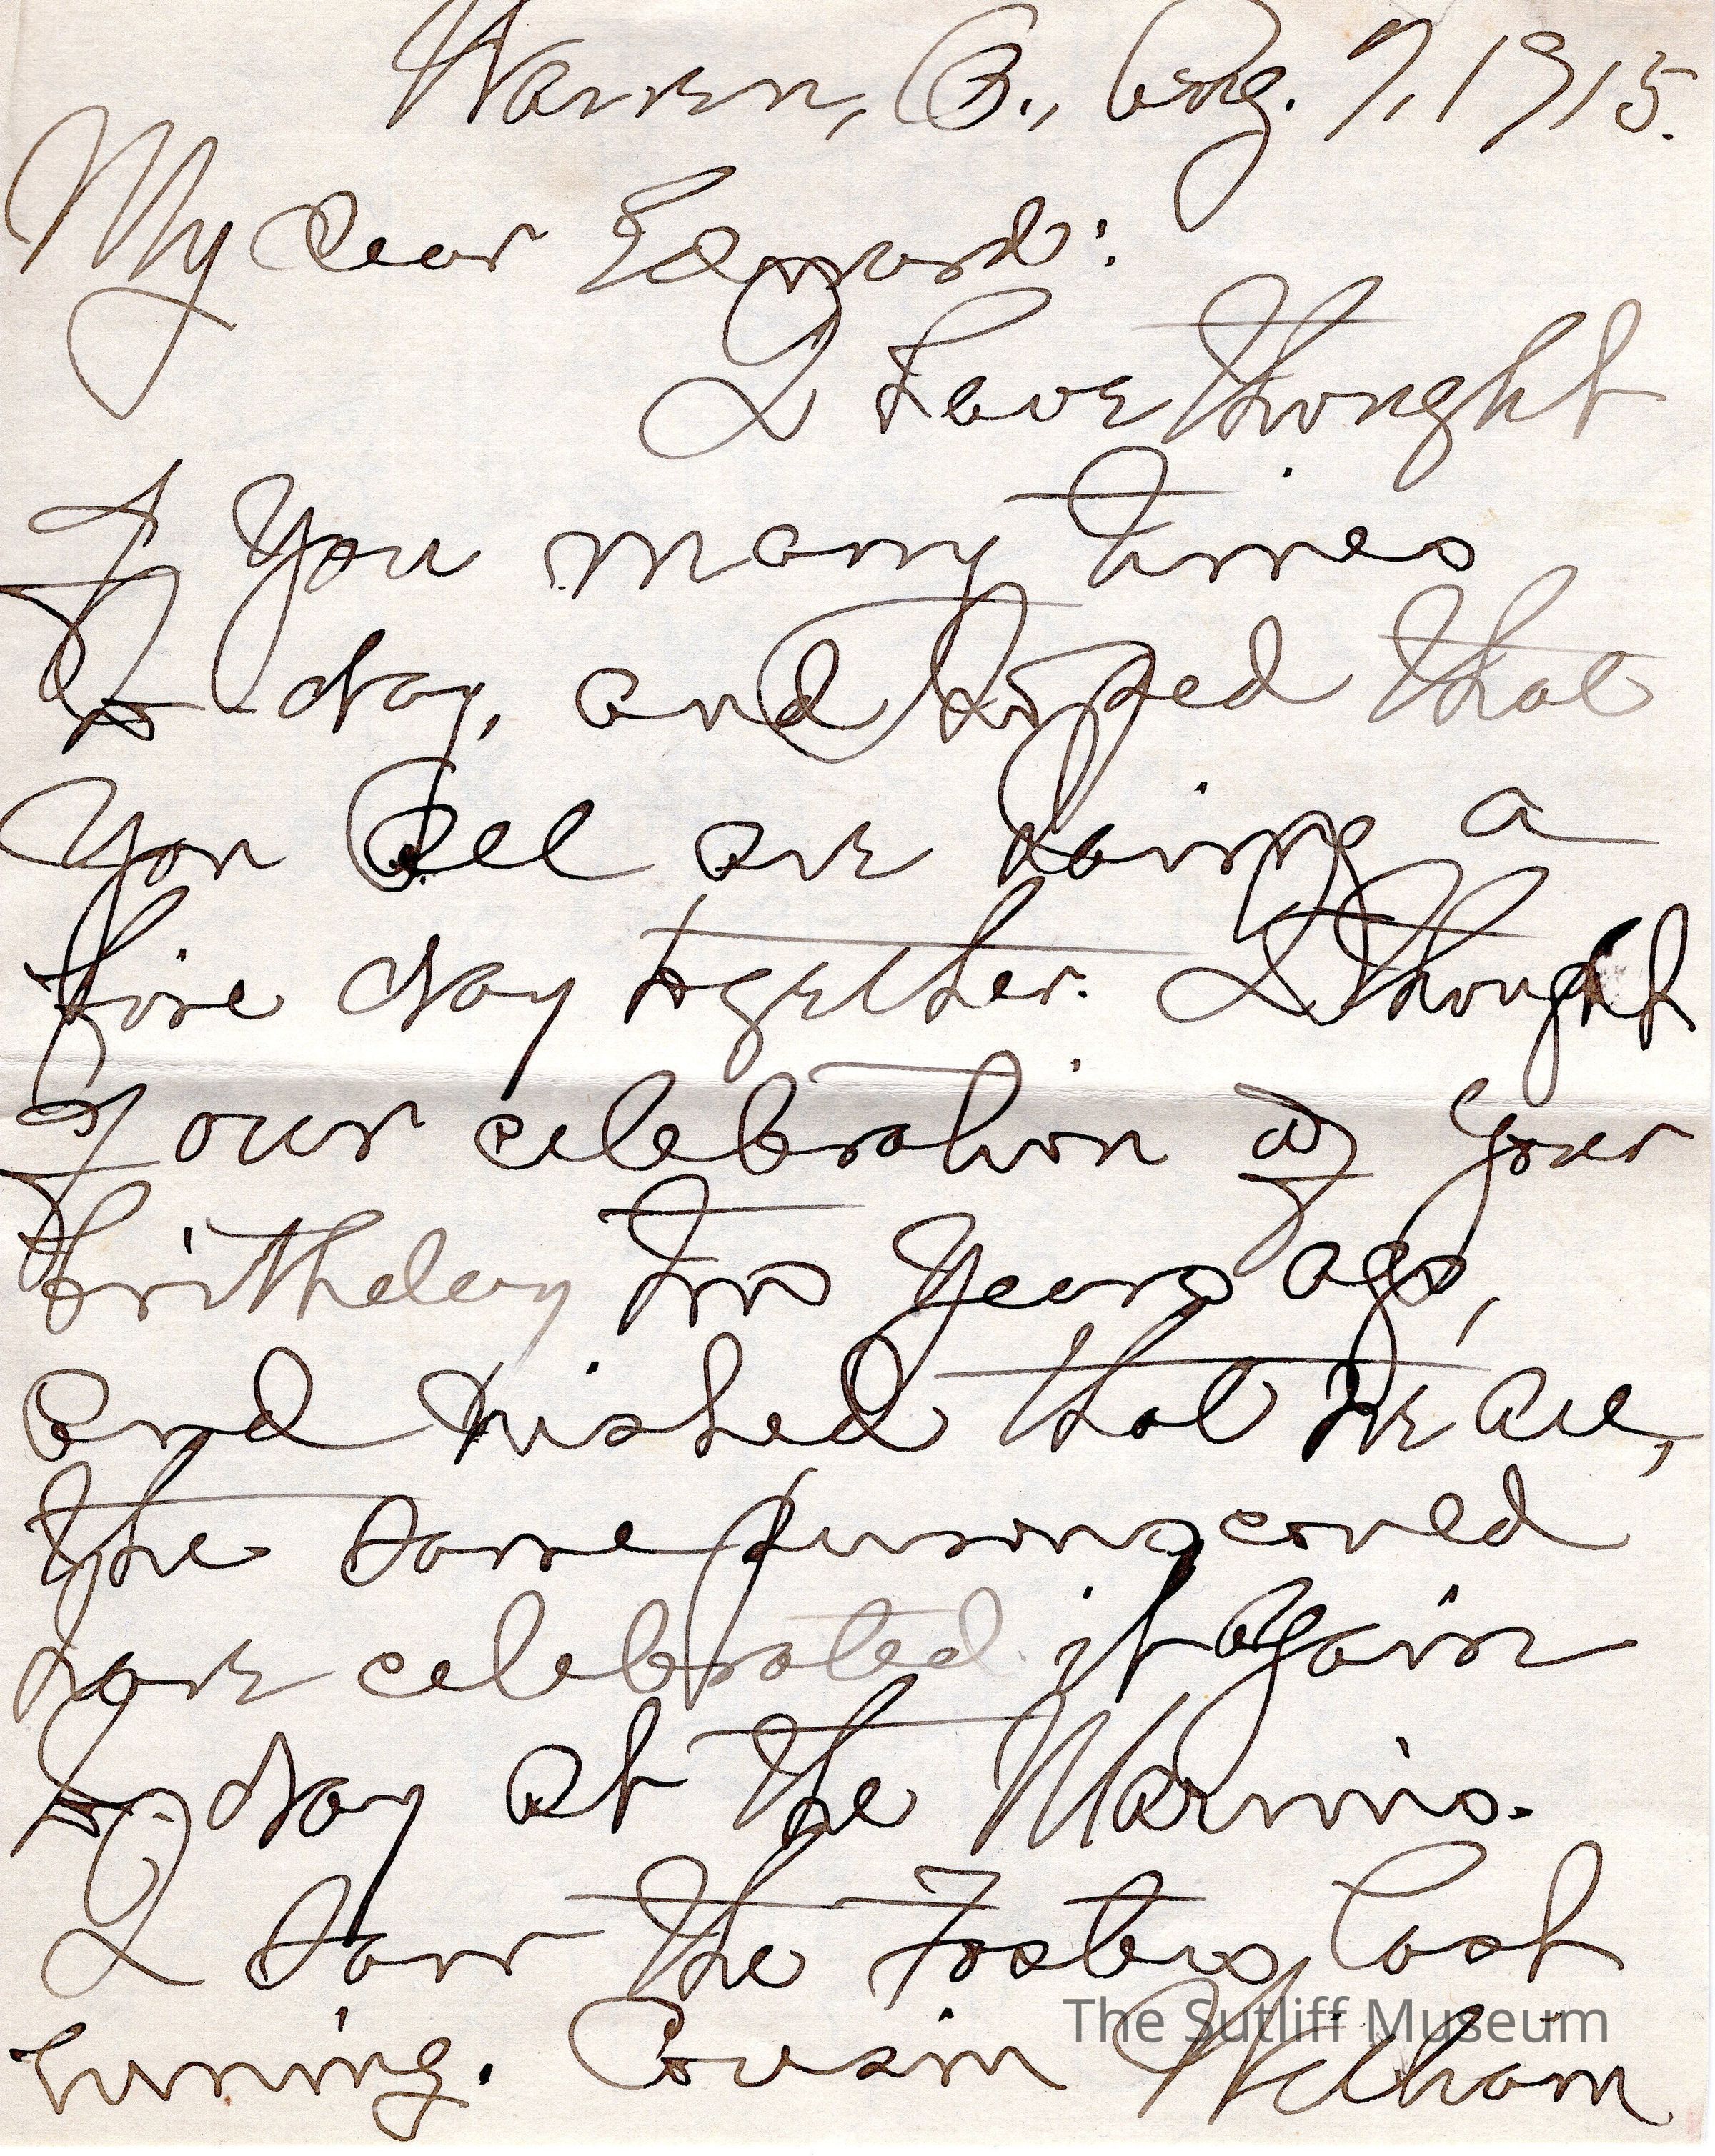 Warren, O., Aug. 7, 1915.
My dear Edward:
I have thought
of you many times
to day, and hoped that
you all are having a
fine day together. I thought
of our celebration of your
birthday two years ago,
and wished that we all,
the same persons, could
have celebrated it again
to day at the
I saw the Fosters last
evening. Cousin William
The Sutliff Museum